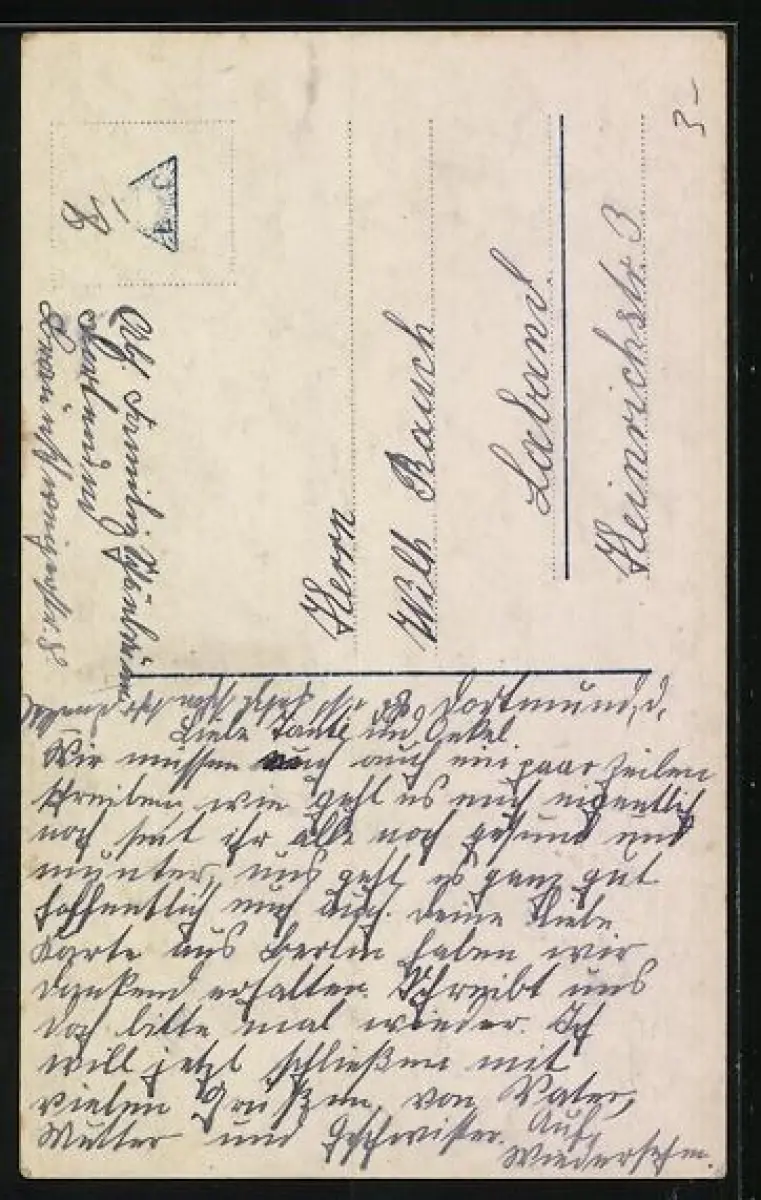 3-
Herrn
Wilh Rauch
Laband
Heinrichstr. 3
Abs. Familie
Dortmund
Braunschweigerstr. 8
Dortmund, d.
Liebe Tante und Onkel
Wir müssen euch auch ein paar Zeilen
schreiben wie geht es euch eigentlich
noch seit ihr alle noch gesund und
munter, uns geht es ganz gut
hoffentlich euch auch. Deine Liebe
Karte aus Berlin haben wir
dankend erhalten. Schreibt uns
doch bitte mal wieder. Ich
will jetzt schließen mit
vielen Grüßen, von Vater,
Mutter und Geschwister. Auf
Wiedersehn.